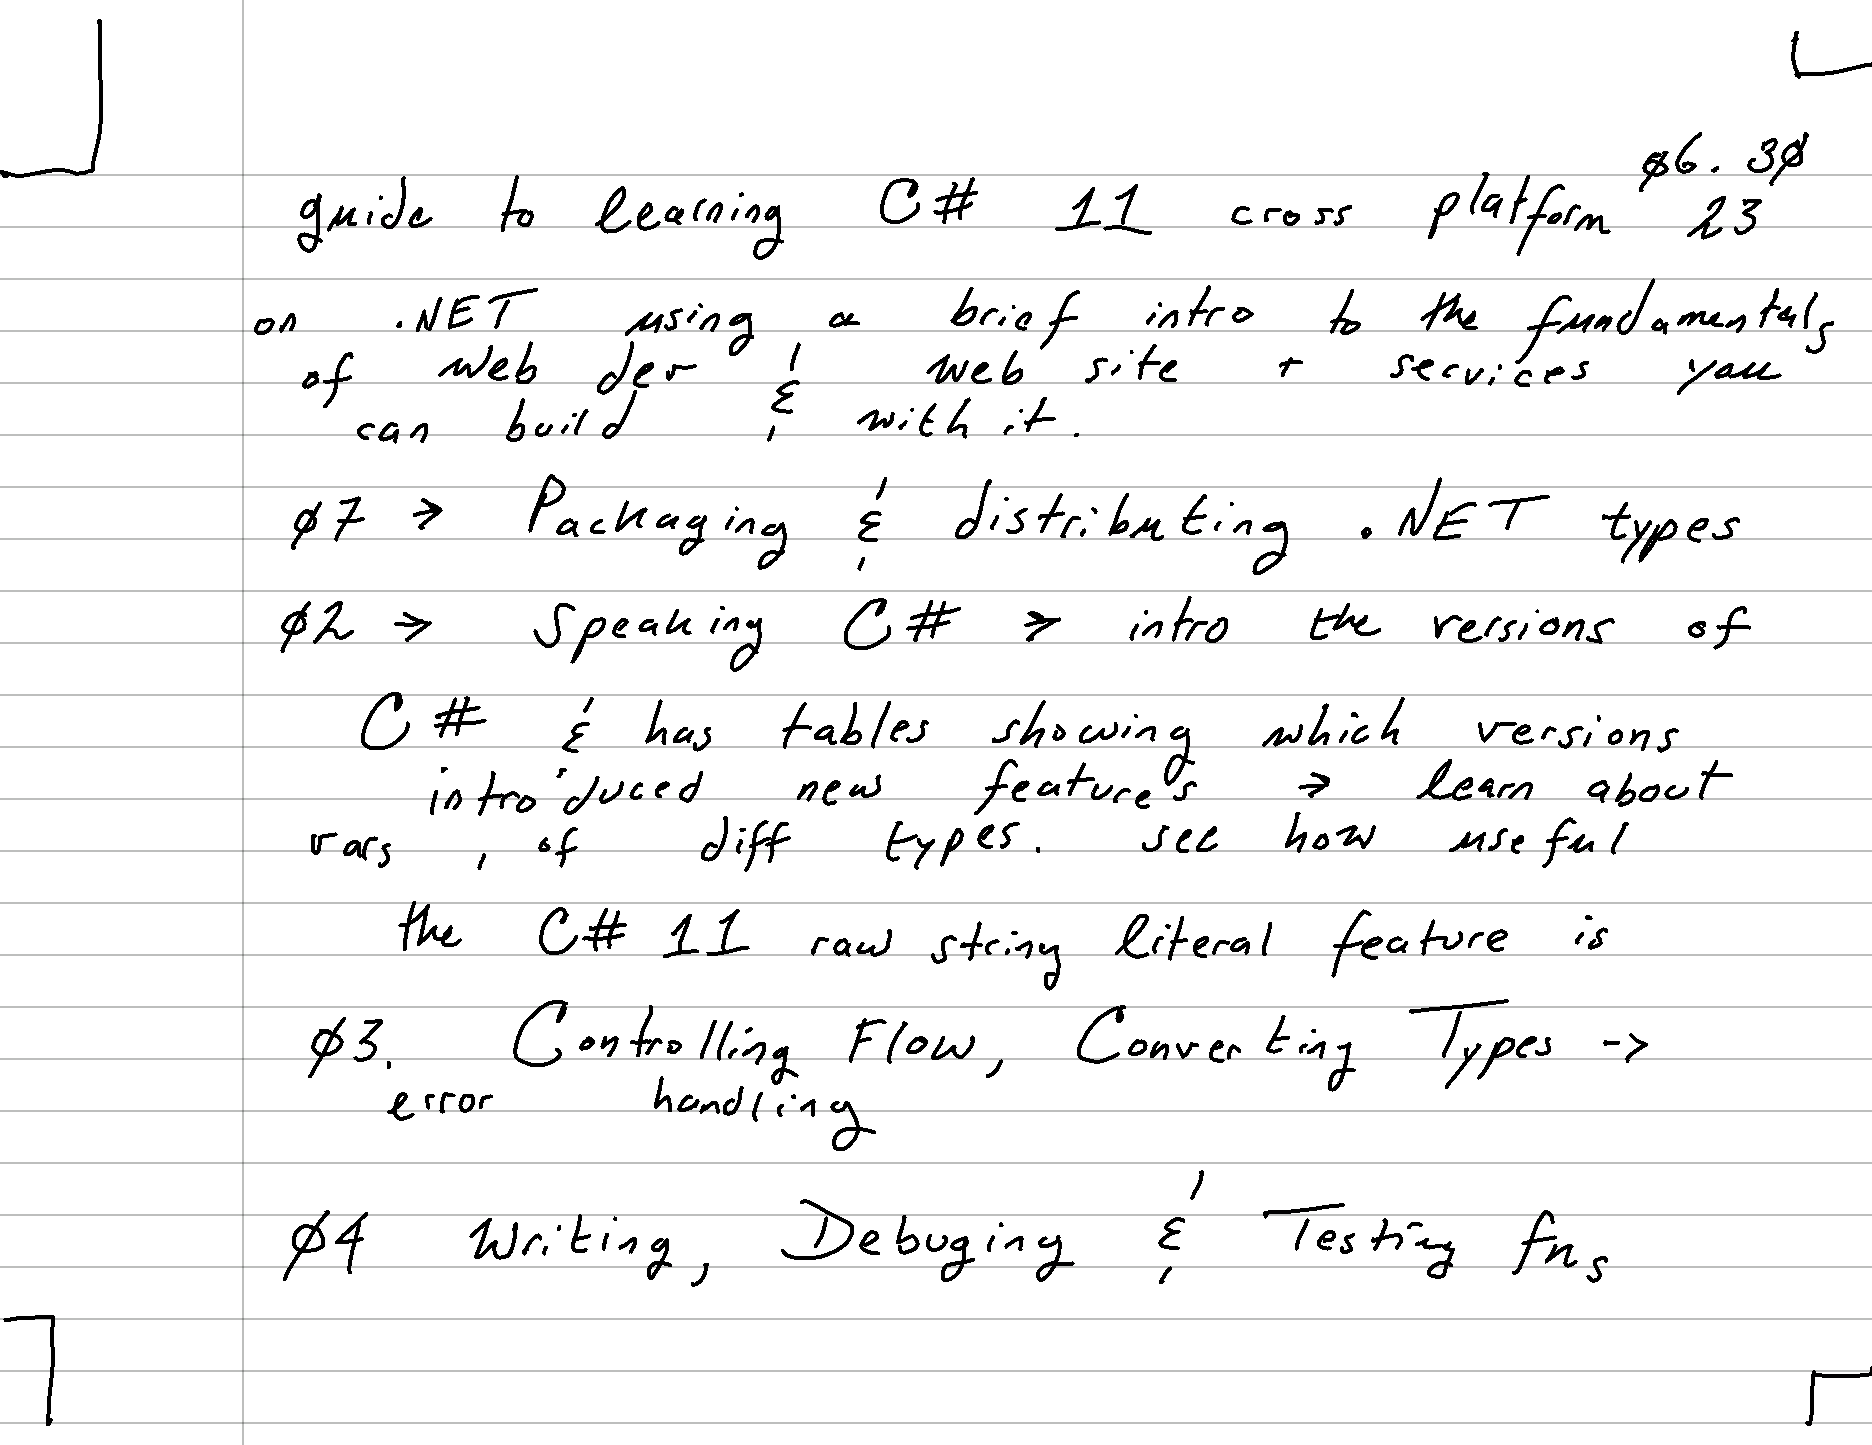 ø6. 3ø
guide to learning C# 11 cross platform 23
on .NET using a brief intro to the fundamentals
of web dev & web site + services you
can build & with it.
ø7 → Packaging & distributing .NET types
ø2 → Speaking C# → intro the versions of
C# & has tables showing which versions
introduced new features → learn about
vars , of diff types. see how useful
the C# 11 raw string literal feature is
ø3. Controlling Flow, Converting Types ->
error handling
ø4 Writing, Debuging & Testing fns